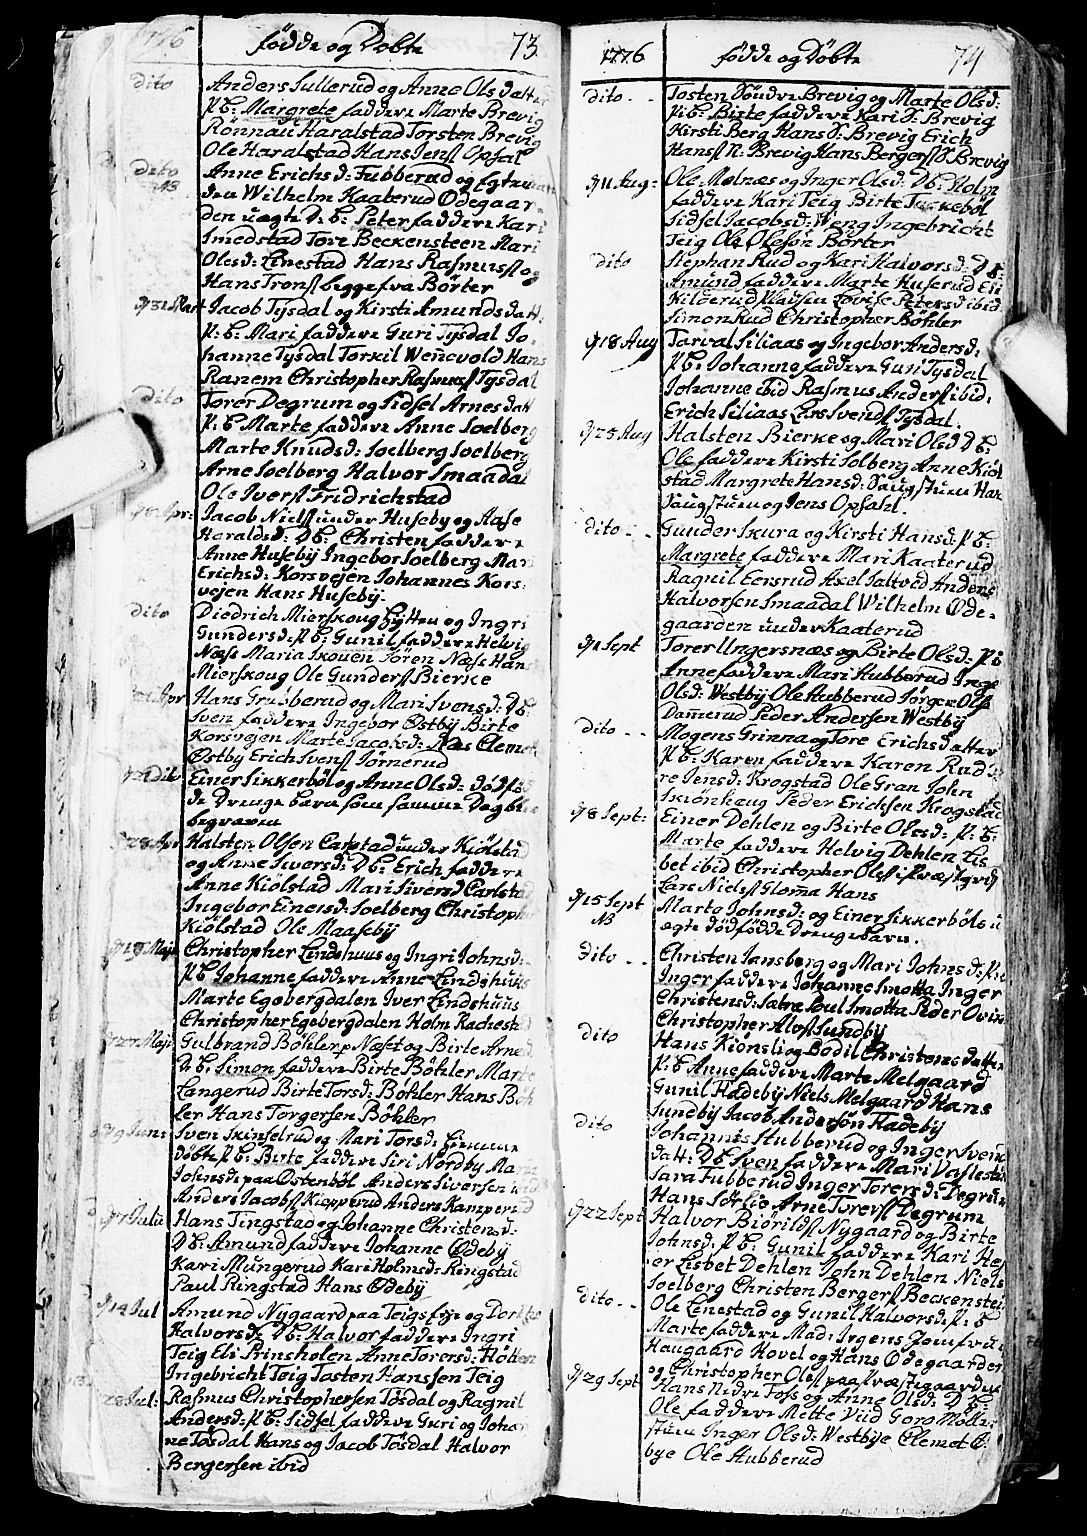 1776 fødde og Døbte 73
dito Anders Sullerud og Anne Olsdatter
P: B: Margrete faddere Marte Brevig
Rønnau Haralstad Torsten Brevig
Ole Haralstad Hans Jens: Opsal
dito NB Anne Erichsd: Fubberud og
den Wilhelm Kaaterud Ødegaar-
den uegte D: B: Peter faddere Kari
Smedstad Tore Beckensteen Mari
Olesd: Linestad Hans Rasmus: og
Hans Trons: begge fra Børter
d 31 Mart Jacob Tysdal og Kirsti Amundsdatt:
P: B: Mari faddere Guri Tysdal Jo-
hanne Tysdal Torkil Wennevold Hans
Ranem Christopher Rasmus: Tysdal
dito Torer Degrum og Sidsel Arnesdatt
P: B: Marte faddere Anne Soelberg
Marte Knudsd: Soelberg Soelberg
Arne Soelberg Halvor Smaadal
Ole Ivers: Fridrichstad
Apr: Jacob Niels: under Huseby og Aase
Haraldsd: D: B: Christen faddere
Anne Huseby Ingebor Soelberg Mari
Erichsd: Korsvejen Johannes Kors-
vejen Hans Huseby.
dito Diedrich Mierskoug Hytten og Ingri
Gundersd: P: B: Gunil faddere Helvig
Næss Maria Skouen Sören Næss Hans
Mierskoug Ole Gunders: Bierke
Apr Hans Grusberud og Mari Svensd: D: B:
Sven faddere Ingebor Østby Birte
Korsvejen Marte Jacobsd: Næs Clemet
Østby Erich Svens: Tornerud
dito Einer Sikkerbøl og Anne Olsd: dødfød-
de Drengebarn som samme Dag blev
begraven
d 28 Apr Halsten Olsen Carlstad under Kiölstad
og Anne Siversd: D: B: Erich faddere
Anne Kiölstad Mari Siversd Carlstad
Ingebor Einersd: Soelberg Christopher
Kiölstad Ole Maaseby
d 19 Maji Christopher Lindshuus og Ingri Johnsd:
P: B: Johanne faddere Anne Lindshuus
Marte Egebergdalen Iver Lindshuus
Christopher Egebergdalen Holm Rachestad
d 27 Maji Gulbrand Böhler p Næset og Birte Arnesd.
D: B: Simon faddere Birte Böhler Marte
Langerud Birte Torsd: Böhler Hans Böh
ler Hans Torgersen Böhler
d 9 Juni Sven Skinselrud og Mari Torsd: hiemme
Döbte P: B: Birte faddere Siri Nordby Maria
Johnsd: paa Østenböl Anders Siversen ibid
Anders Jacobs: Kiepperud Anders Kamperud
d 7 Julii Hans Tingstad og Johanne Christensd:
D: B: Amund faddere Johanne Ødeby
Kari Mungerud Kari Holmsd: Ringstad
Paul Ringstad Hans Ødeby
d 14 Jul Amund Nygaard paa Teigs eje og Dorthe
Halvorsd: D: B: Halvor faddere Ingri
Teig Els Prinsholen Anne Torersd: Høtten
Ingebricht Teig Tosten Hanssen Teig
28 Jul: Rasmus Christophersen Tösdal og Ragnil
Andersd: P: B: Sidsel faddere Guri og Johan
ne Tösdal Hans og Jacob Tösdal Halvor
Bergersen ibid
1776 fødde og Døbte 74
dito Tosten Söndre Brevig og Marte Olsd:
P: B: Birte faddere Kari S: Brevig
Kirsti Berg Hans S: Brevig Erich
Hans: N: Brevig Hans Bergers: S Brevig
d 11 Aug: Ole Molnæs og Inger Olsd: D: B: Holm
faddere Kari Teig Birte Teckeböl
Sidsel Jacobsd: Weng Ingebricht
Teig Ole Olesön Börter
dito Stephan Rud og Kari Halvorsd: D B:
Amund faddere Marte Huserud Eli
Hilderud Lovise Petersd ibid
Simon Rud Christopher Böhler
d 18 Aug Tarval Siliaas og Ingebor Andersd:
P: B: Johanne faddere Guri Tysdal
Johanne ibid Rasmus Anders: ibid:
Erich Siliaas Lars Svends: Tysdal.
d 25 Aug Halsten Bierke og Mari Olsd D B:
Ole faddere Kirsti Solberg Anne Kiöl
stad Margrete Hansd: Haugstuen Hans
Haugstuen og Jens Opsahl.
dito Gunder Skura og Kirsti Hansd: P: B:
Margrete faddere Mari Kaaterud
Ragnil Eersrud Axel Saltved Anders
Halvorsen Smaadal Wilhelm Øde-
gaarden under Kaaterud
d 1 Sept Torer Ungersnæs og Birte Olsd: P: B
Anne faddere Mari Hubberud Inge
Olsd: Westby Ole Hubberud Jörgen Ols:
Damerud Peder Andersen Westby
dito Mogens Grinna og Tore Erichsdatter
P: B: Karen faddere Karen Rud
re Jensd: Krogstad Ole Gran John
Skiönhaug Peder Erichsen Krogstad
d 8 Sept: Einer Dehlen og Birte Olesd: P: B:
Marte faddere Helvig Dehlen Lis
bet ibid Christopher Ols:
Lars Niels: Glomma Hans
d 15 Sept NB Marte Johnsd: og Einer Sikkerböls u
egte dødfødde Drengebarn.
Dito Christen Jansberg og Mari Johnsd: P: B
Inger faddere Johanne Smotta Inger
Christensd: Sætre Poul Smotta Peder Ovin
Christopher Alos: Sundby
dito Hans Kionsli og Bodil Christensdatter
P: B Anne faddere Marte Melgaard
Gunil Hadeby Niels Melgaard Hans
Sundby Jacob Andersön Hadeby
dito Johannis Hubberud og Inger Svens
datt: D: B: Sven faddere Mari Vaslestad
Sara Fubberud Inger Torersd: Degrum
Hans Sörlie Arne Torers: Degrum
d 22 Sept Halvor Biörils: Nygaard og Birte
Johnsd: P: B: Gunil faddere Kari He
er Lisbet Dehlen John Dehlen Niels
Soelberg Christen Bergers: Beckensteen
dito Ole Linestad og Gunil Halvorsd: P: B
Marte faddere Mad: Irgens Jomfrue
Haugaard Hovel og Hans Ødegaarden
og Christopher Ols: paa Præstegaarden
d 29 Sept Hans Nedre Foss og Anne Olsd: D B:
Ole faddere Mette Viid Goro Möller
stuen Inger Olsd: Westbye Clemet Ø
bye Ole Hubberud